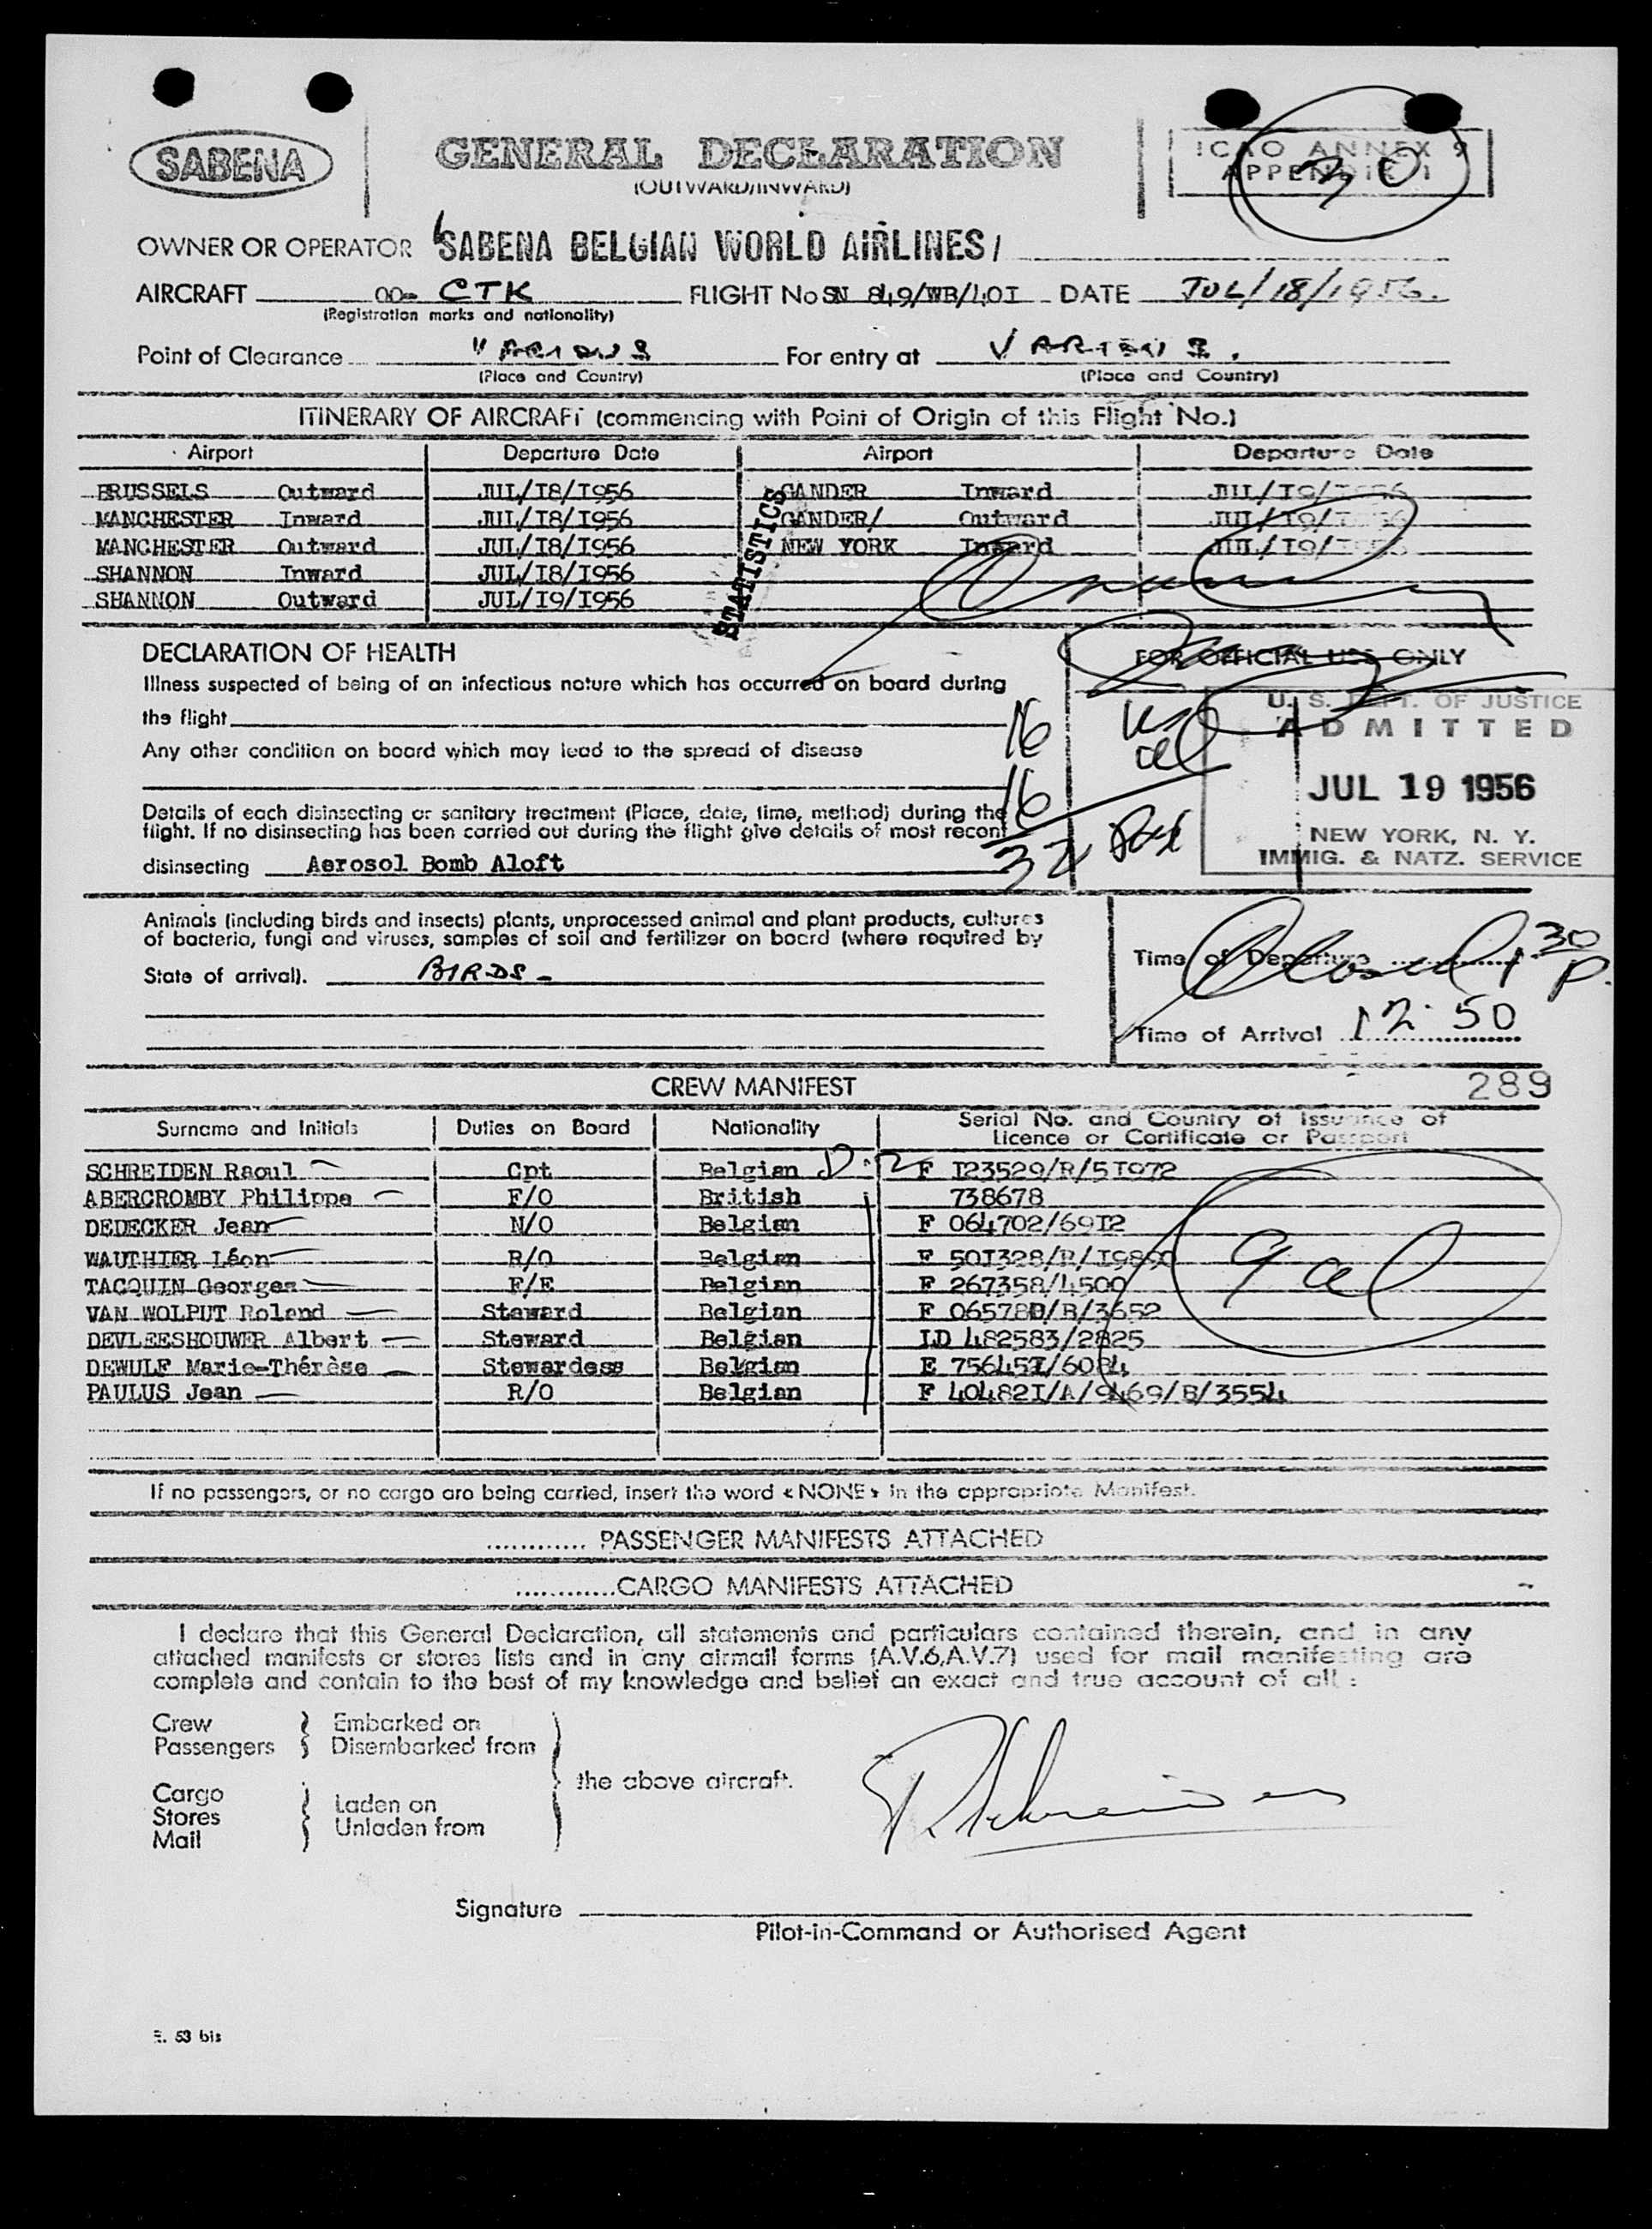 SABENA
GENERAL DECLARATION
(OUTWARD/INWARD)
ICAO ANNEX 9
APPENDIX 1
30
OWNER OR OPERATOR SABENA BELGIAN WORLD AIRLINES/
AIRCRAFT OO- CTK FLIGHT No SN 849/WB/40I DATE JUL/18/1956.
(Registration marks and nationality)
Point of Clearance VARIOUS For entry at VARIOUS.
(Place and Country) (Place and Country)
ITINERARY OF AIRCRAFT (commencing with Point of Origin of this Flight No.)
Airport Departure Date Airport Departure Date
BRUSSELS Outward JUL/I8/I956 GANDER Inward JUL/I9/I956
MANCHESTER Inward JUL/I8/I956 GANDER/ Outward JUL/I9/I956
MANCHESTER Outward JUL/I8/I956 NEW YORK Inward JUL/I9/I956
SHANNON Inward JUL/I8/I956
SHANNON Outward JUL/I9/I956
STATISTICS
DECLARATION OF HEALTH
FOR OFFICIAL USE ONLY
Illness suspected of being of an infectious nature which has occurred on board during
the flight
Any other condition on board which may lead to the spread of disease
16
16
32
U. S. DEPT. OF JUSTICE
ADMITTED
JUL 19 1956
NEW YORK, N. Y.
IMMIG. & NATZ. SERVICE
Details of each disinsecting or sanitary treatment (Place, date, time, method) during the
flight. If no disinsecting has been carried out during the flight give details of most recent
disinsecting Aerosol Bomb Aloft
Animals (including birds and insects) plants, unprocessed animal and plant products, cultures
of bacteria, fungi and viruses, samples of soil and fertilizer on board (where required by
State of arrival). BIRDS -
Time of Departure 1 30 P.
Time of Arrival 12 50
CREW MANIFEST
289
Surname and Initials Duties on Board Nationality Serial No. and Country of Issuance of
Licence or Certificate or Passport
SCHREIDEN Raoul Cpt Belgian F I23529/R/5I072
ABERCROMBY Philippe F/O British 738678
DEDECKER Jean N/O Belgian F 064702/69I2
WAUTHIER Léon R/O Belgian F 50I328/R/I9890
TACQUIN Georges F/E Belgian F 267358/4500
VAN WOLPUT Roland Steward Belgian F 065780/B/3652
DEVLEESHOUWER Albert Steward Belgian ID 482583/2825
DEWULF Marie-Thérèse Stewardess Belgian E 75645I/6084
PAULUS Jean R/O Belgian F 40482I/A/9469/B/3554
If no passengers, or no cargo are being carried, insert the word « NONE » in the appropriate Manifest.
............ PASSENGER MANIFESTS ATTACHED
............CARGO MANIFESTS ATTACHED
I declare that this General Declaration, all statements and particulars contained therein, and in any
attached manifests or stores lists and in any airmail forms (A.V.6,A.V.7) used for mail manifesting are
complete and contain to the best of my knowledge and belief an exact and true account of all :
Crew Embarked on
Passengers Disembarked from
the above aircraft.
Cargo
Stores Laden on
Mail Unladen from
Signature
Pilot-in-Command or Authorised Agent
E. 53 bis